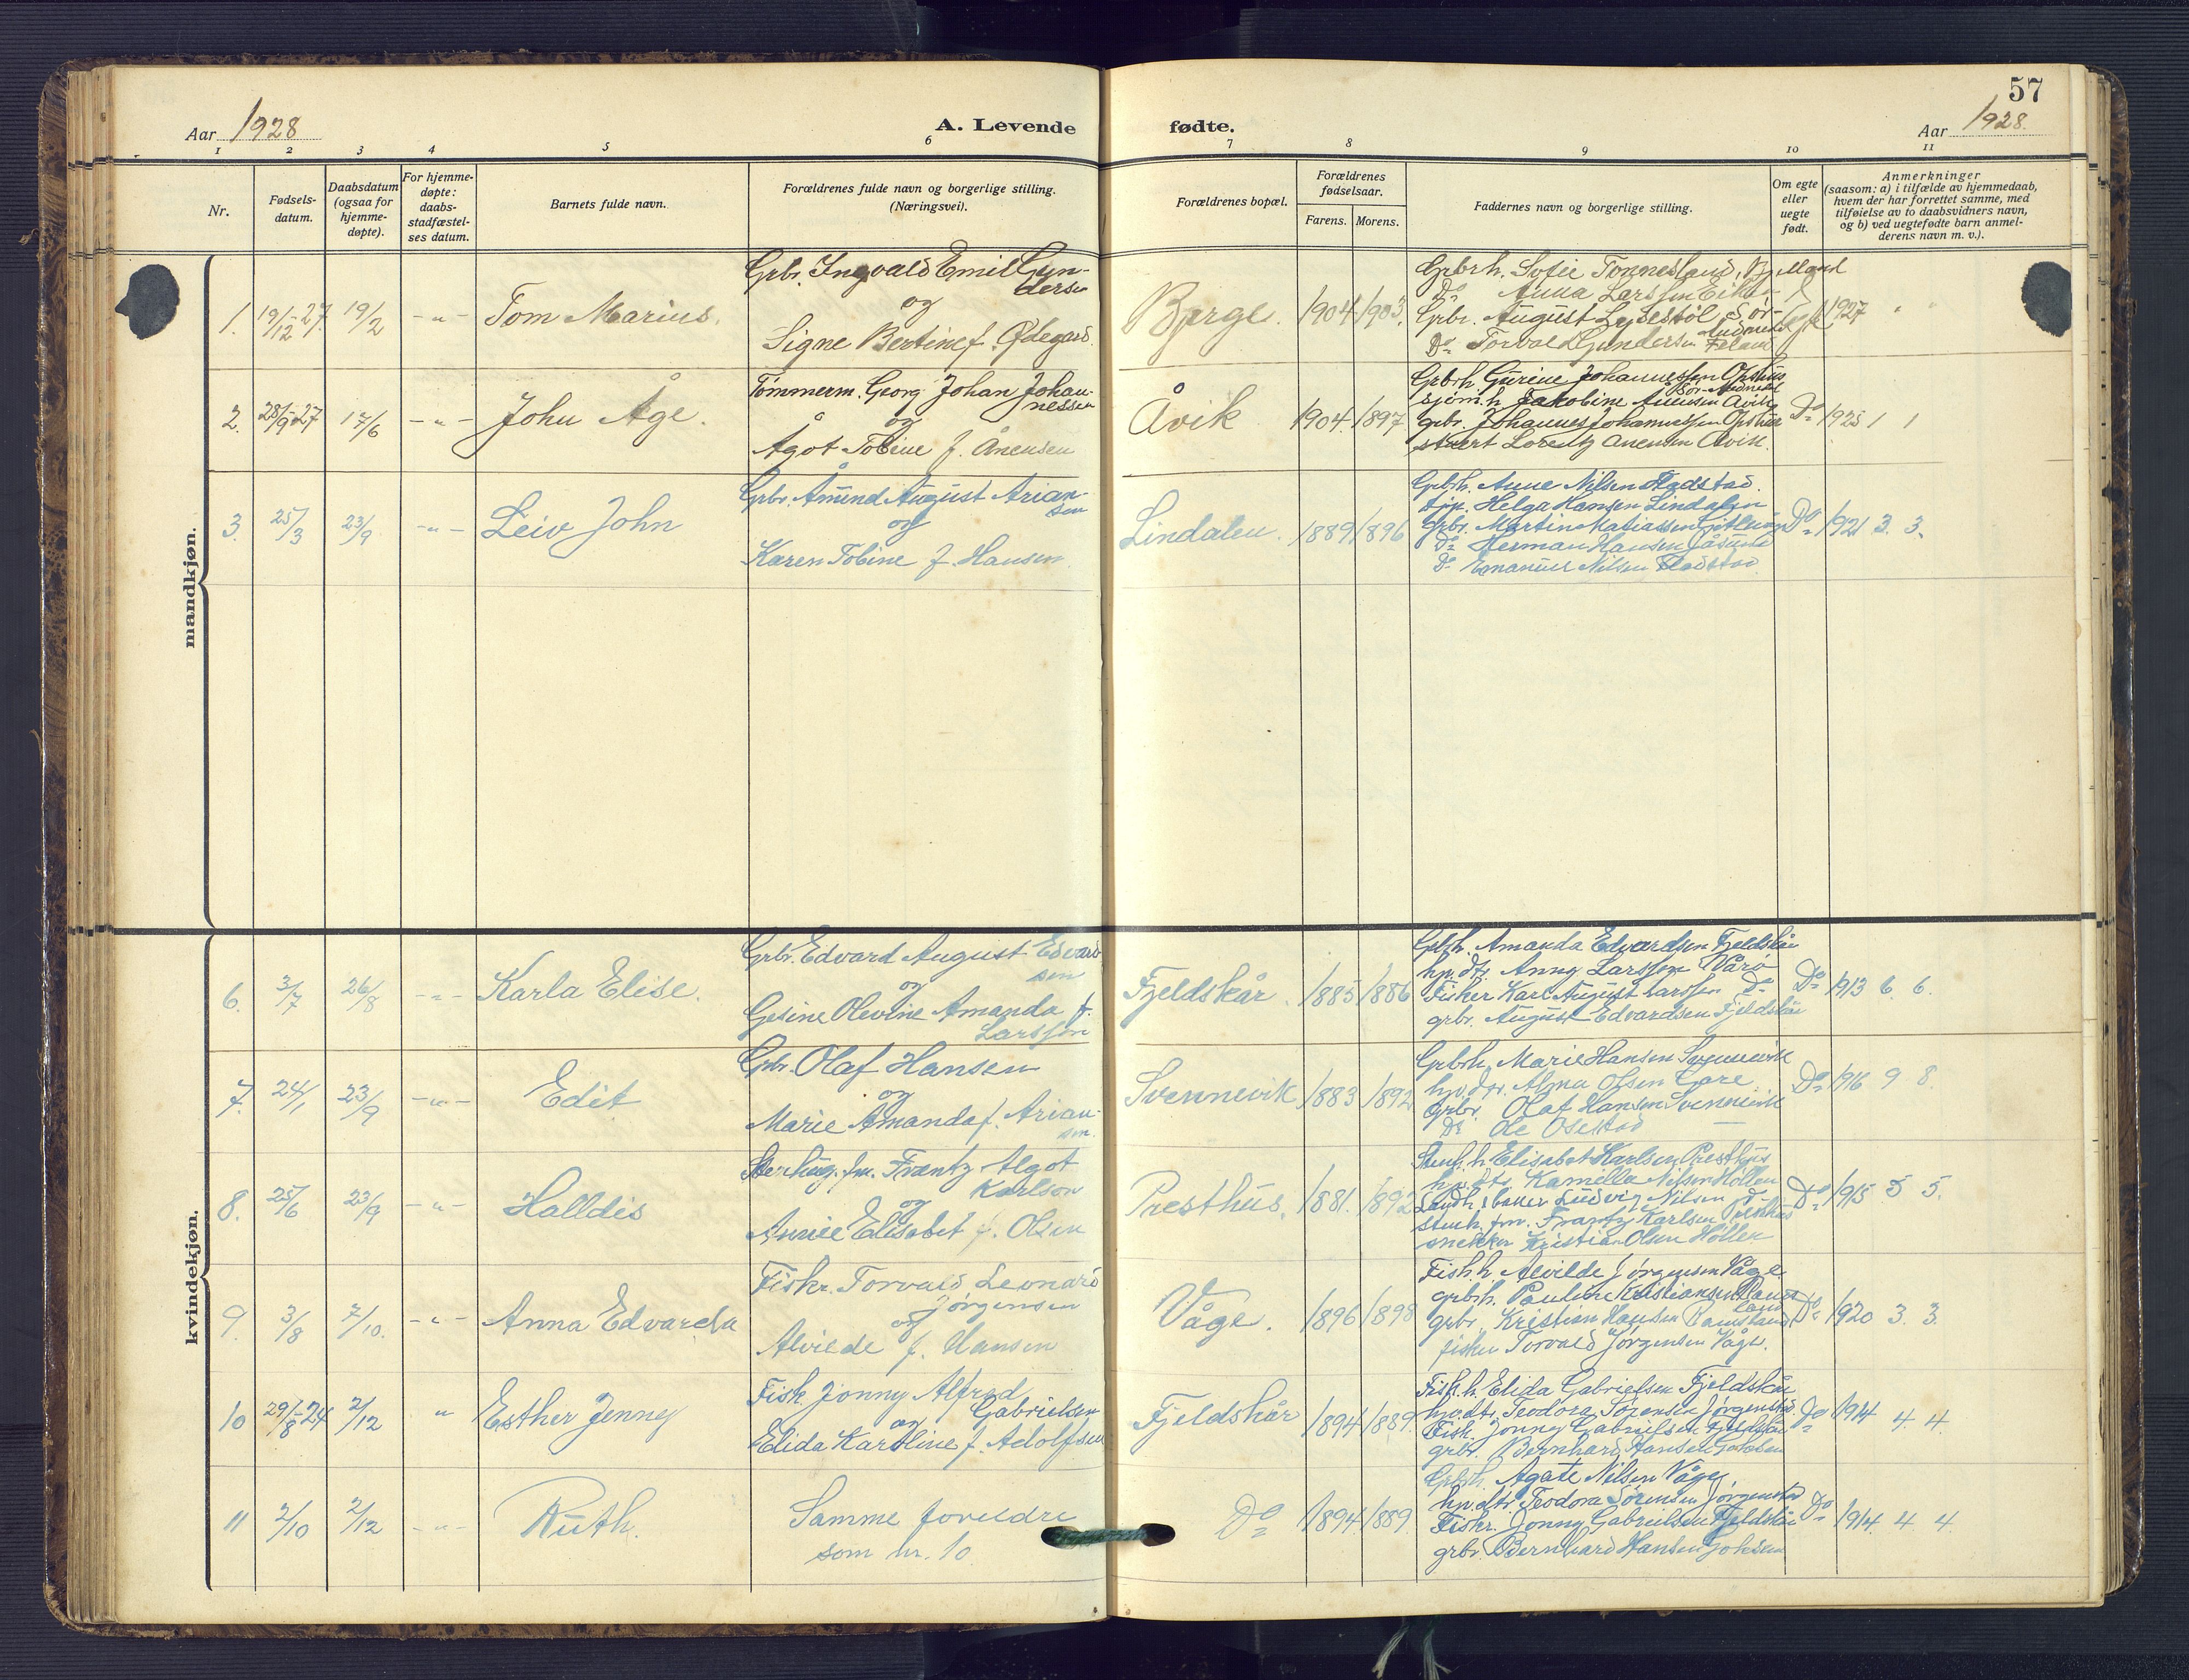 57
Aar 1928
A. Levende fødte.
Aar 1928.
1 2 3 4 5 6 7 8 9 10 11
Nr.
Fødsels-
datum.
Daabsdatum
(ogsaa for
hjemme-
døpte).
For hjemme-
døpte:
daabs-
stadfæstel-
ses datum.
Barnets fulde navn.
Forældrenes fulde navn og borgerlige stilling.
(Næringsvei).
Forældrenes bopæl.
Forældrenes
fødselsaar.
Farens. Morens.
Faddernes navn og borgerlige stilling.
Om egte
eller
uegte
født.
Anmerkninger
(saasom: a) i tilfælde av hjemmedaab,
hvem der har forrettet samme, med
tilføielse av to daabsvidners navn,
og b) ved uegtefødte barn anmel-
derens navn m. v.).
mandkjøn.
1. 19/12-27 19/2 -"- Tom Marius.
Grbr. Ingvald Emil Gun-
dersen
og
Signe Bertine f. Ødegard.
Børge. 1904. 1903.
Grbrh. Sofie Tonnesland, Bjelland
Do Anna Larssen
Grbr. August Sør-
Audnedal
Do Torvald Gundersen
1927
2. 28/9-27 17/6 -"- John Åge.
Tømmerm. Georg Johan Johan-
nessen
og
Ågot Tobine f. Ånensen
Åvik 1904. 1897.
Grbrh. Gurine Johannessen
Sør-Audnedal
sjøm.h. Jakobine Åvik
grbr. Johannes Johannessen
stuert Lorentz Anensen Åvik.
Do 1925 1 1
3. 25/3 23/9 -"- Leiv John
Grbr. Åmund August Arian-
sen
og
Karen Tobine f. Hansen
Lindalen. 1889. 1896
Grbrh. Anne Nilsen Fladstad.
tjp. Helga Hansen Lindalen
Grbr. Martin Matiassen
Do Herman Hansen Jåsund
Do Emanuel Nilsen Fladstad
Do 1921 3. 3.
kvindekjøn.
6. 3/7 26/8 -"- Karla Elise.
Grbr. Edvard August Edvard-
sen
og
Gesine Olevine Amanda f.
Larssen
Fjeldskår. 1885 1886
Grbh. Amanda Edvardsen Fjeldskår
hp. dtr. Anny Larssen Vårø
Fisker Karl August Larssen Do
grbr. August Edvardsen Fjeldskår
Do 1913 6. 6.
7. 24/1 23/9 -"- Edit
Grbr. Olaf Hansen
og
Marie Amanda f. Arian-
sen.
Svennevik 1883 1892
Grbrh. Marie Hansen Svennevik
hp. dtr. Alma Olsen Gare
Grbr. Olaf Hansen Svennevik
Do Ole Osestad
Do 1916 9 8.
8. 25/6 23/9 -"- Halldis
Frantz Algot
Karlson
og
Annie Elisabet f. Olsen
Presthus. 1881. 1892
Stenh. h. Elisabet Karlsen Presthus
hp. dtr. Kamilla Nilsen Høllen
Landh. baker Ludvig Nilsen Do
stenh. fm. Frantz Karlsen Presthus
snekker Kristian Olsen Høllen
Do 1915 5 5.
9. 3/8 7/10. -"- Anna Edvarda
Fiskr. Torvald Leonard
Jørgensen
og
Alvilde f. Hansen
Våge. 1896 1898
Fisk.h. Alvilde Jørgensen Våge.
grbrh. Pauline Kristiansen Rams-
land
grbr. Kristian Hansen Ramsland
fisker Torvald Jørgensen Våge.
Do 1920 3. 3.
10 29/8-24 2/12 " Esther Jenny
Fisk. Jonny Alfred
Gabrielsen
og
Elida Karoline f. Adolfsen
Fjeldskår 1894 1889.
Fisk.h. Elida Gabrielsen Fjeldskår
hp. dtr. Teodora Sørensen Jørgenstad
Fisk. Jonny Gabrielsen Fjeldskår
grbr. Bernhard Hansen
Do 1914 4 4.
11 2/10 2/12 -"- Ruth.
Samme foreldre
som nr. 10.
Do 1894. 1889.
Grbrh. Agate Nilsen Våge,
hp. dtr. Teodora Sørensen Jørgenstad
Fiskr. Jonny Gabrielsen Fjeldskår
grbr. Bernhard Hansen
Do 1914. 4. 4